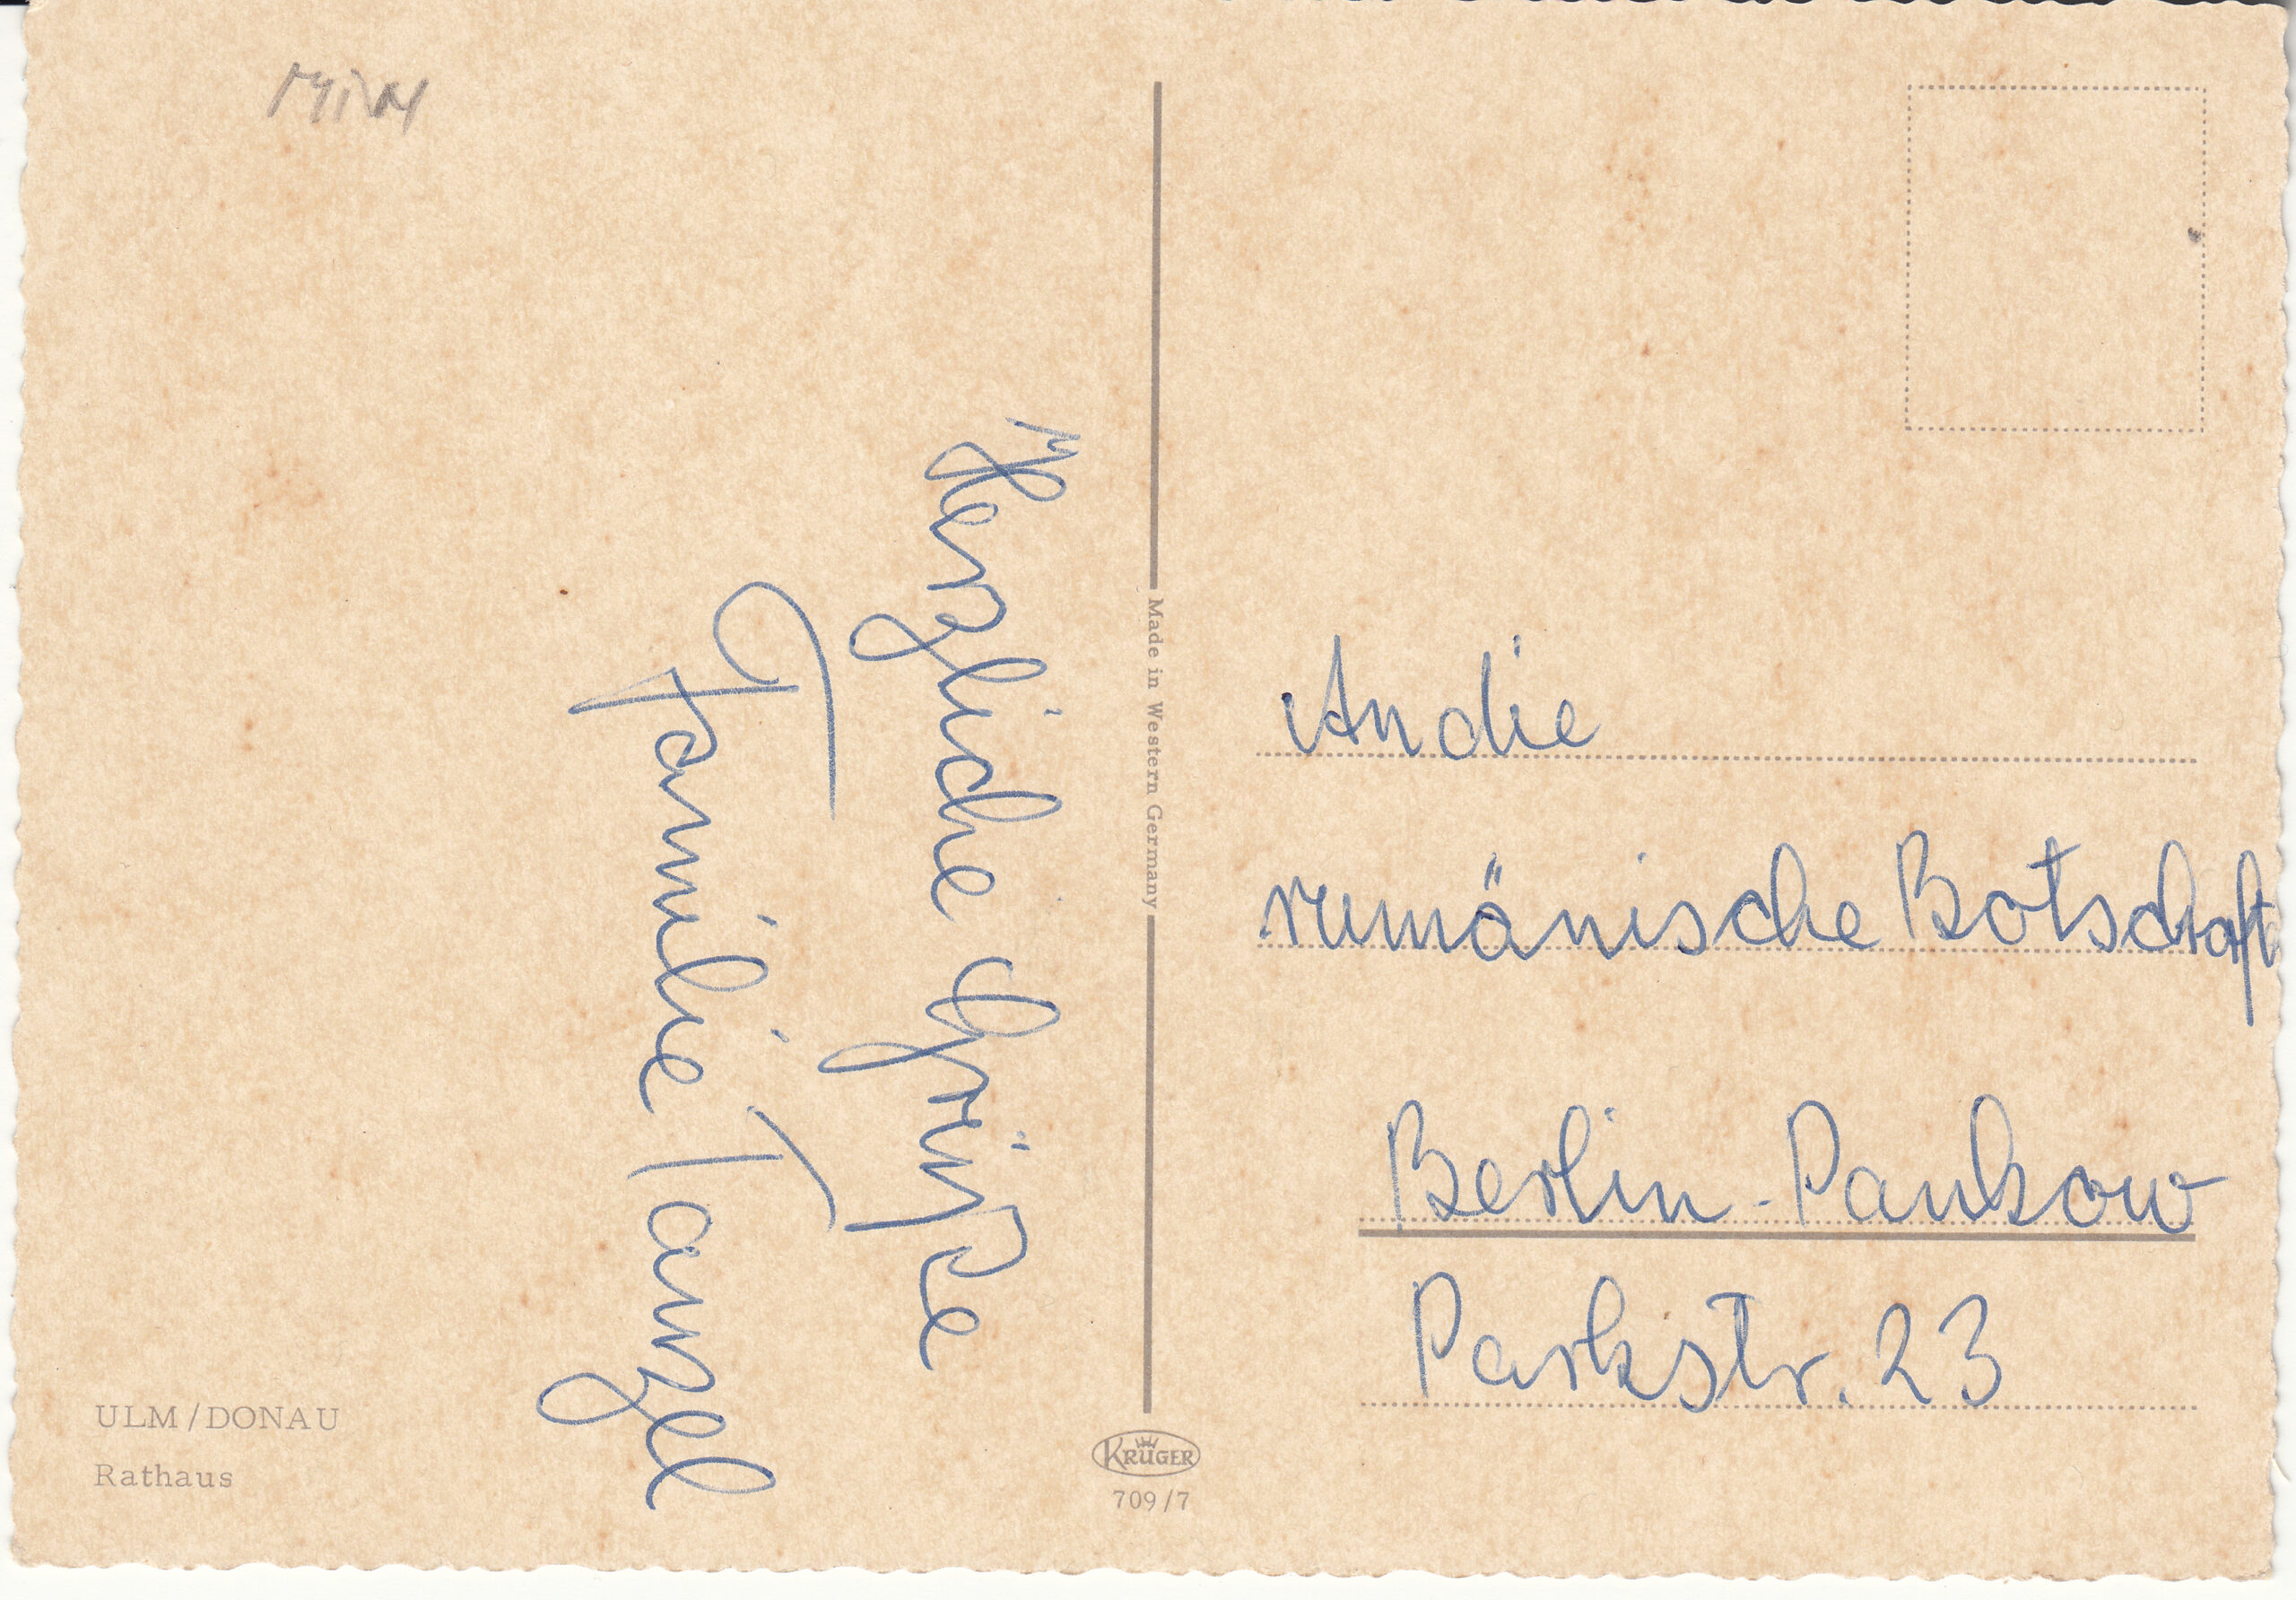 Herzliche Grüße
Familie Tanzel
Made in Western Germany
An die
rumänische Botschaft
Berlin-Pankow
Parkstr. 23
ULM/DONAU
Rathaus
KRÜGER
709/7